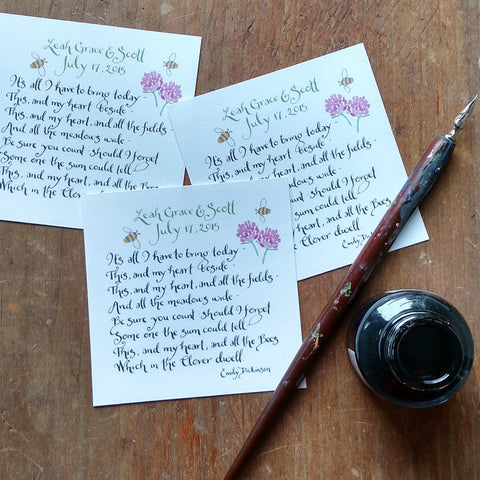 Leah Grace & Scott
July 17, 2015
It's all I have to bring today
This, and my heart beside -
This, my heart, and all the fields -
And all the meadows wide -
Be sure you count should I forget
Some one the sum could tell
This, and my heart, and all the Bees
Which in the Clover dwell
Leah Grace & Scott
July 17, 2015
It's all I have to bring today
This, and my heart beside -
This, my heart, and all the fields -
And all the meadows wide -
Be sure you count should I forget
Some one the sum could tell
and all the Bees
Clover dwell
Emily Dickinson
Leah Grace & Scott
July 17, 2015
It's all I have to bring today
This, and my heart beside -
This, my heart, and all the fields -
And all the meadows wide -
Be sure you count should I forget
Some one the sum could tell
This, and my heart, and all the Bees
Which in the Clover dwell
Emily Dickinson